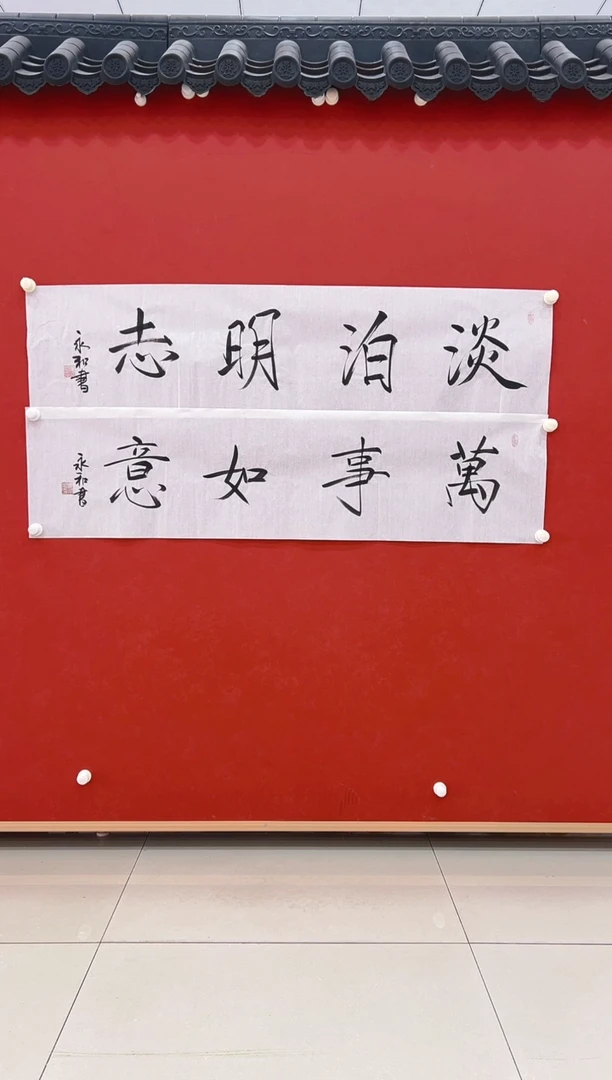 淡泊明志
永和書
萬事如意
永和書